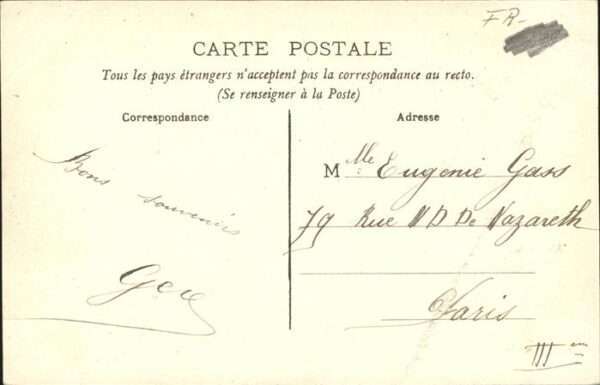 FR-
CARTE POSTALE
Tous les pays étrangers n'acceptent pas la correspondance au recto.
(Se renseigner à la Poste)
Correspondance
Bons souvenirs
Adresse
Mlle Eugenie Gass
79 Rue N D De Nazareth
Paris
III em